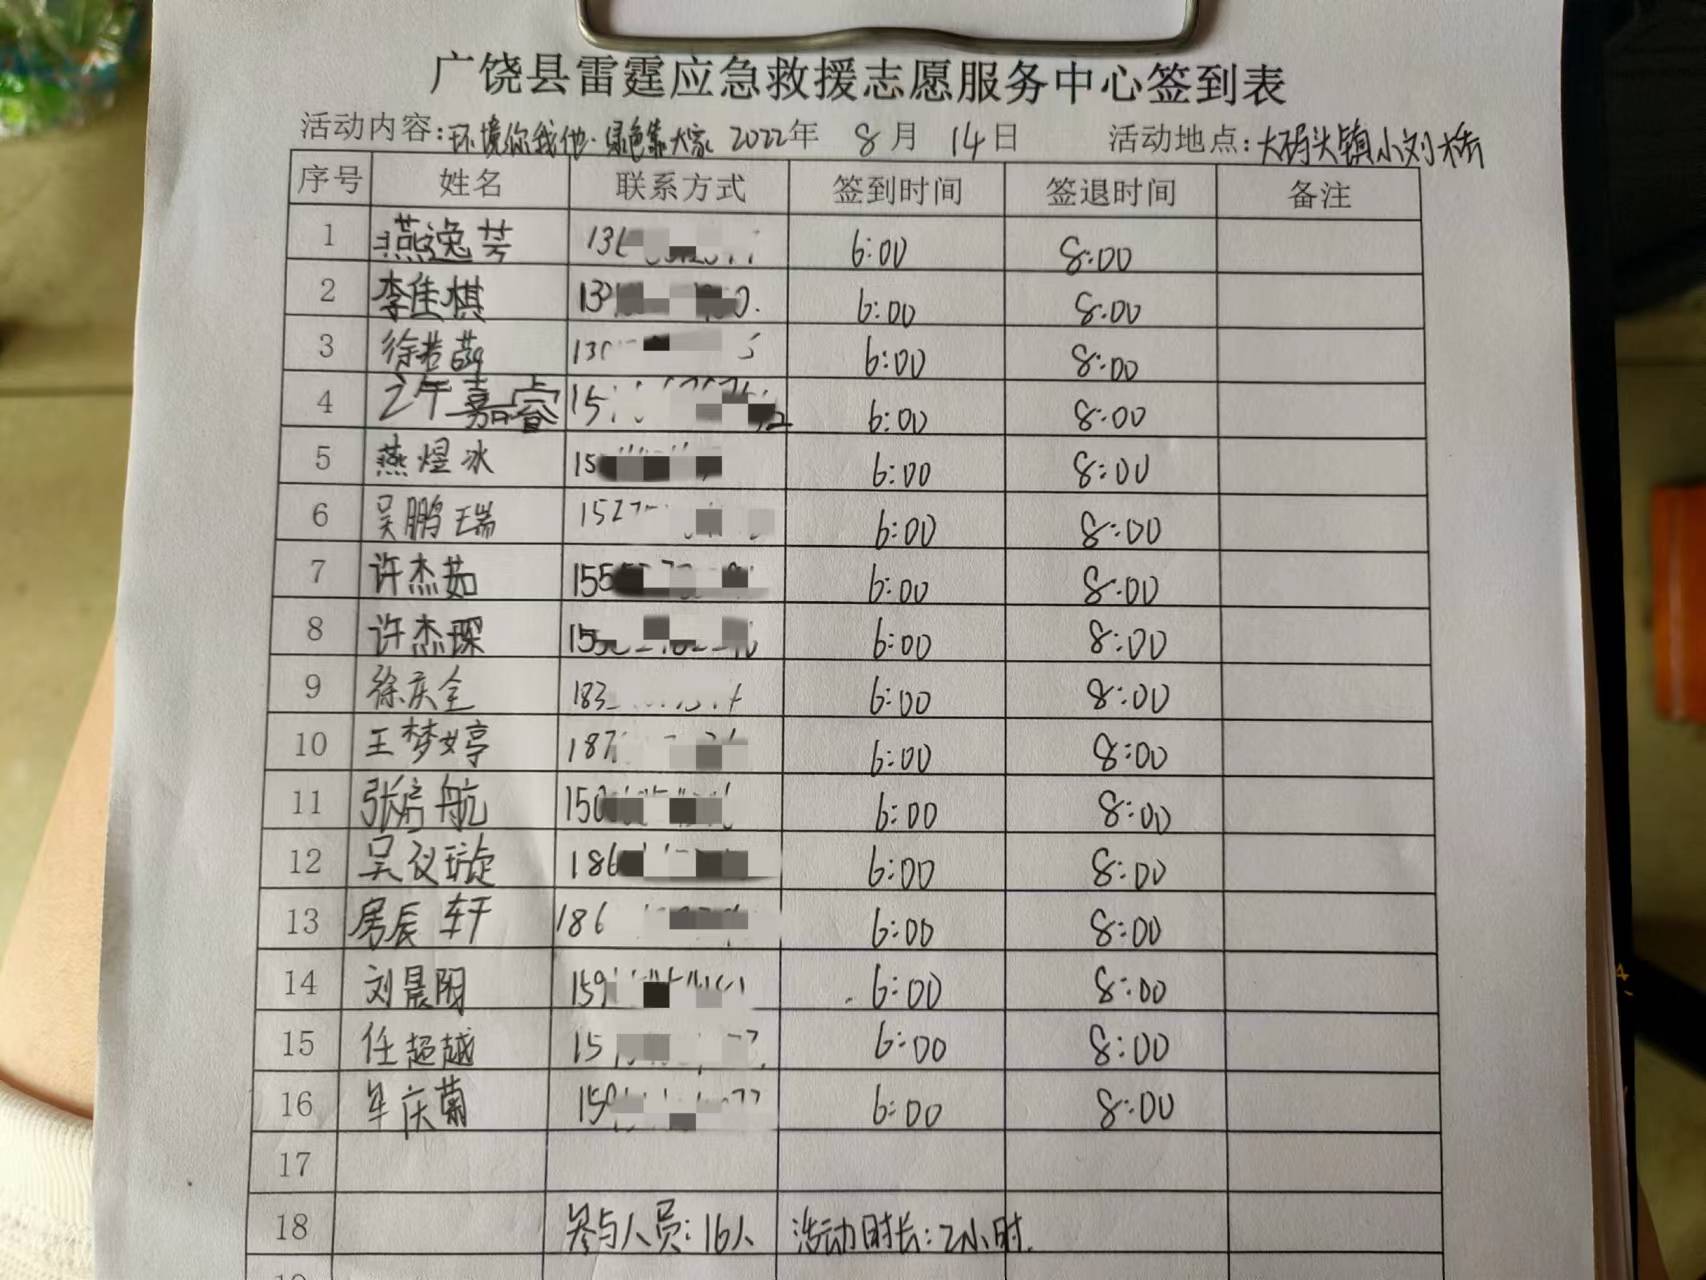 广饶县雷霆应急救援志愿服务中心签到表
活动内容:环境你我他·绿色靠大家 2022年 8月 14日 活动地点:大码头镇小刘桥
序号 姓名 联系方式 签到时间 签退时间 备注
1 燕逸芳 13 6:00 8:00
2 李佳棋 13 6:00 8:00
3 徐若菡 13 6:00 8:00
4 嘉睿 15 6:00 8:00
5 燕煜冰 15 6:00 8:00
6 吴鹏瑞 1527 6:00 8:00
7 许杰茹 155 6:00 8:00
8 许杰琛 15 6:00 8:00
9 徐庆全 183 6:00 8:00
10 王梦婷 187 6:00 8:00
11 张启航 150 6:00 8:00
12 吴议璇 186 6:00 8:00
13 房辰轩 186 6:00 8:00
14 刘晨阳 159 6:00 8:00
15 任超越 15 6:00 8:00
16 牟庆菊 159 6:00 8:00
17
18 参与人员:16人 活动时长:2小时.